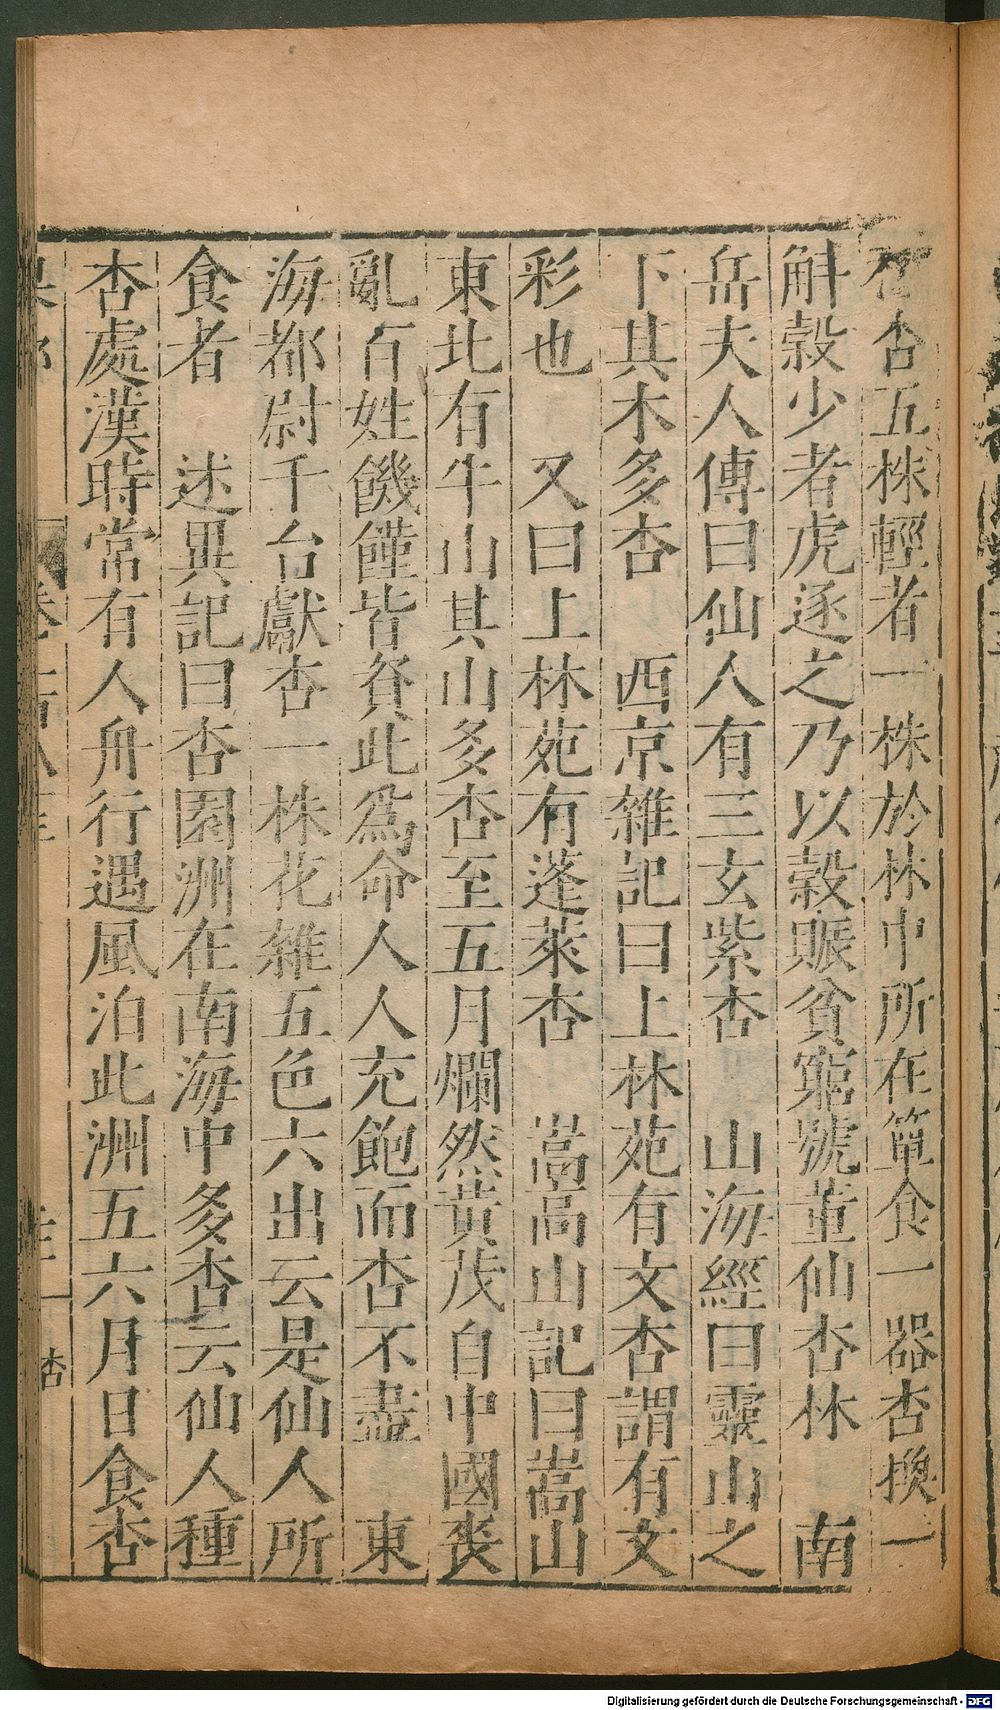 杏五株輕者一株於林中所在簞食一器杏換一
斛穀少者虎逐之乃以穀賑貧窮號董仙杏林　南
岳夫人傳曰仙人有三玄紫杏　山海經曰靈山之
下其木多杏　西京雜記曰上林苑有文杏謂有文
彩也　又曰上林苑有蓬萊杏　嵩高山記曰嵩山
東北有牛山其山多杏至五月爛然黃茂自中國喪
亂百姓饑饉皆資此爲命人人充飽而杏不盡　東
海都尉于台獻杏一株花雜五色六出云是仙人所
食者　述異記曰杏園洲在南海中多杏云仙人種
杏處漢時常有人舟行遇風泊此洲五六月日食杏
杏
Digitalisierung gefördert durch die Deutsche Forschungsgemeinschaft - DFG